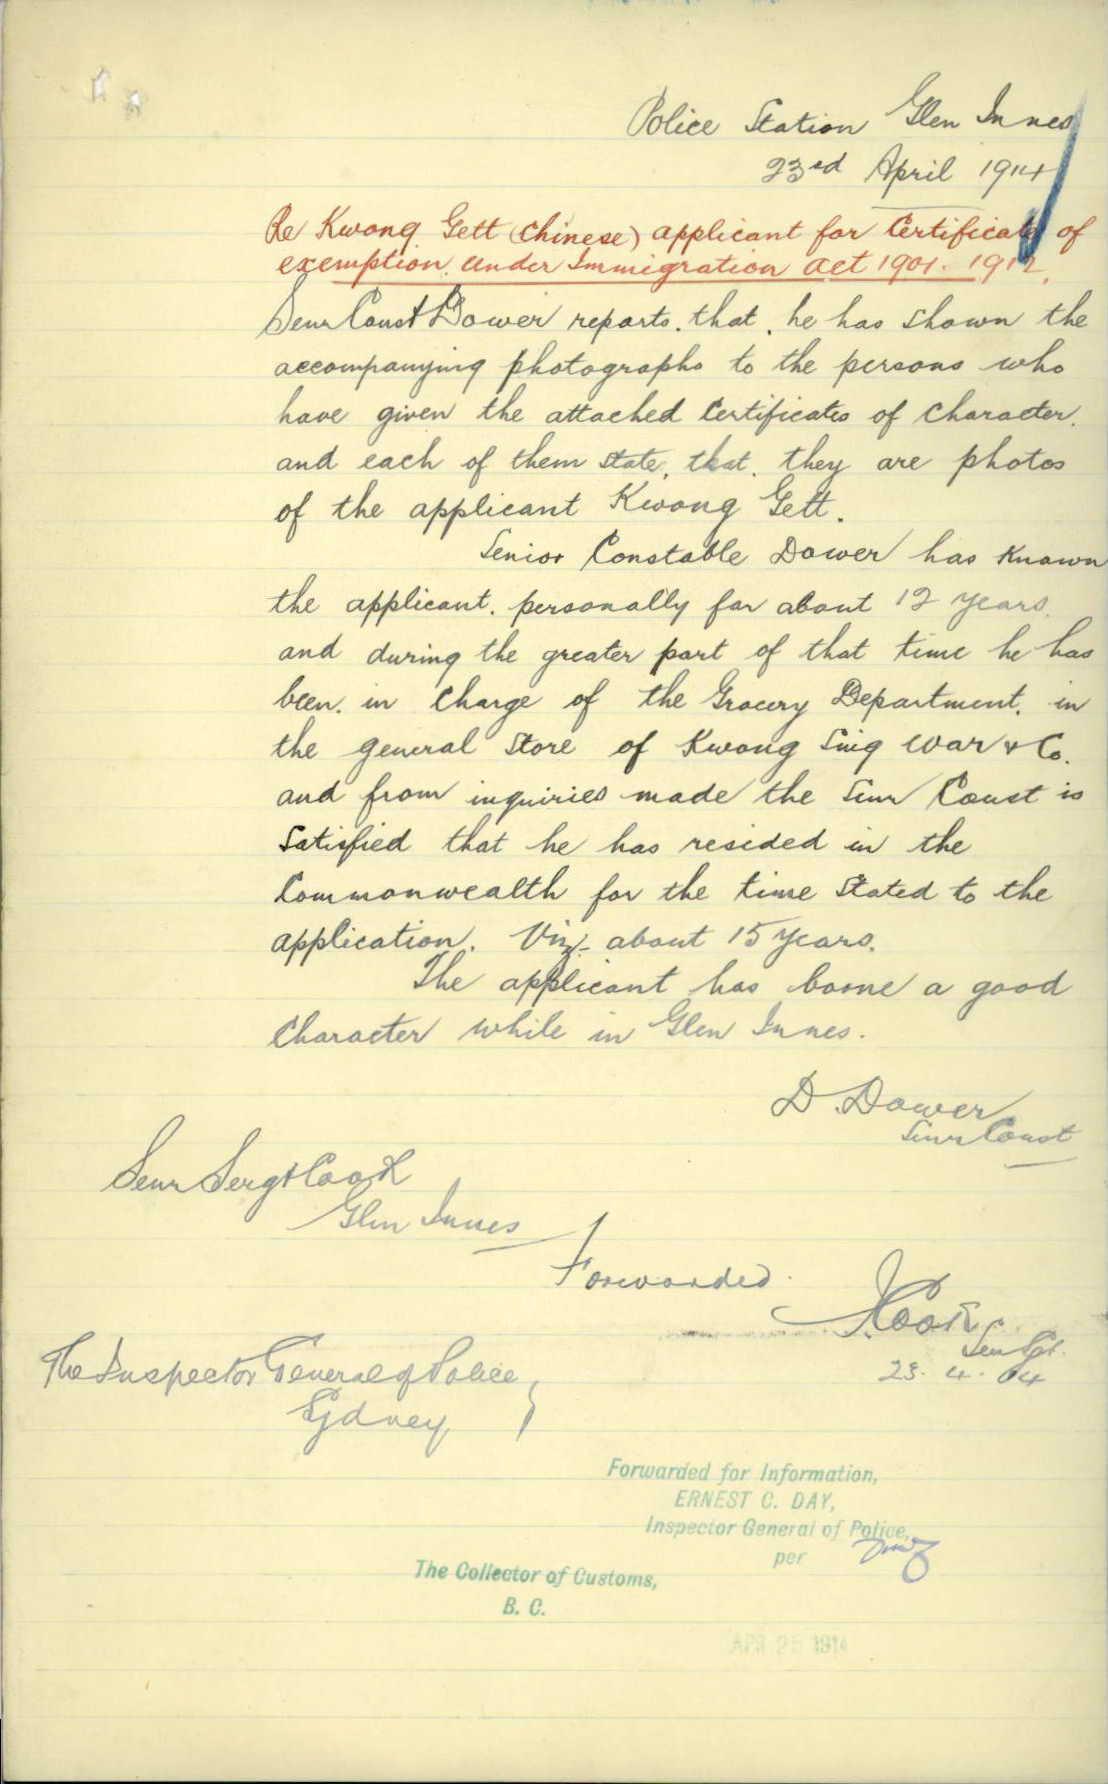 Police Station Glen Innes
23rd April 1914
Re Kwong Gett (Chinese) applicant for Certificate of
exemption under Immigration Act 1901-1912.
Senr Const Dower reports that he has shown the
accompanying photographs to the persons who
have given the attached Certificates of Character.
and each of them state, that they are photos
of the applicant Kwong Gett.
Senior Constable Dower has known
the applicant. personally for about 12 years.
and during the greater part of that time he has
been in Charge of the Grocery Department. in
the general Store of Kwong Sing War & Co.
and from inquiries made the Senr Const is
Satisfied that he has resided in the
Commonwealth for the time Stated to the
application. Viz. about 15 years.
The applicant has borne a good
Character while in Glen Innes.
D. Dower
Senr Const
Senr Sergt Cook
Glen Innes
Forwarded.
J. Cook
Sen Sgt.
23. 4. 14
The Inspector General of Police
Sydney
Forwarded for Information,
ERNEST C. DAY,
Inspector General of Police,
per
The Collector of Customs,
B. C.
APR 25 1914